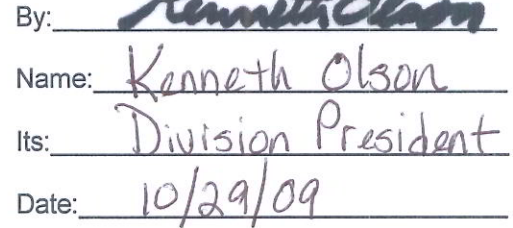 By: Kenneth Olson
Name: Kenneth Olson
Its: Division President
Date: 10/29/09